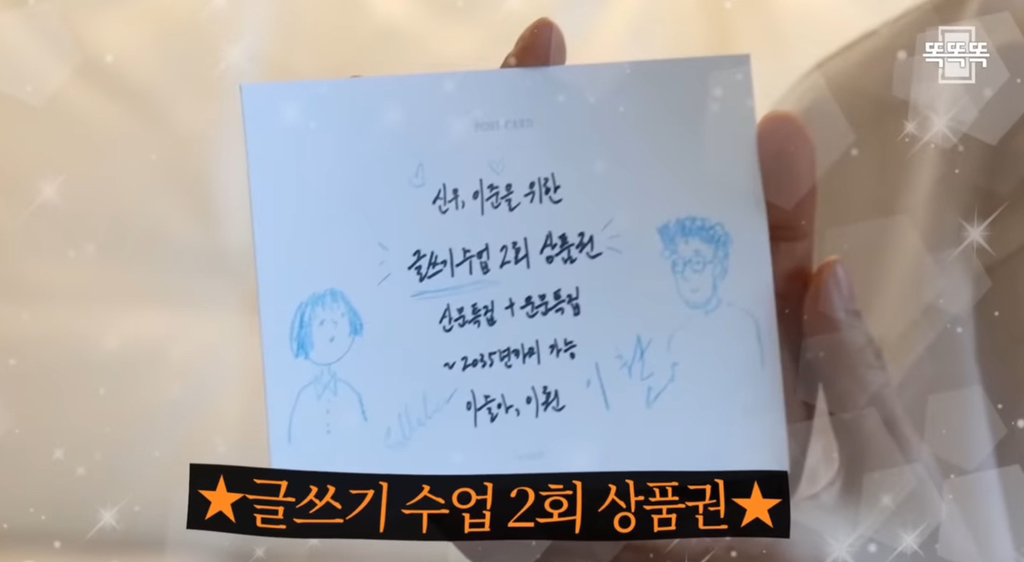 똑똑똑
POST CARD
신우, 이준을 위한
글쓰기 수업 2회 상품권
산문특집 + 운문특집
~ 2035년까지 가능
이훤
★글쓰기 수업 2회 상품권★